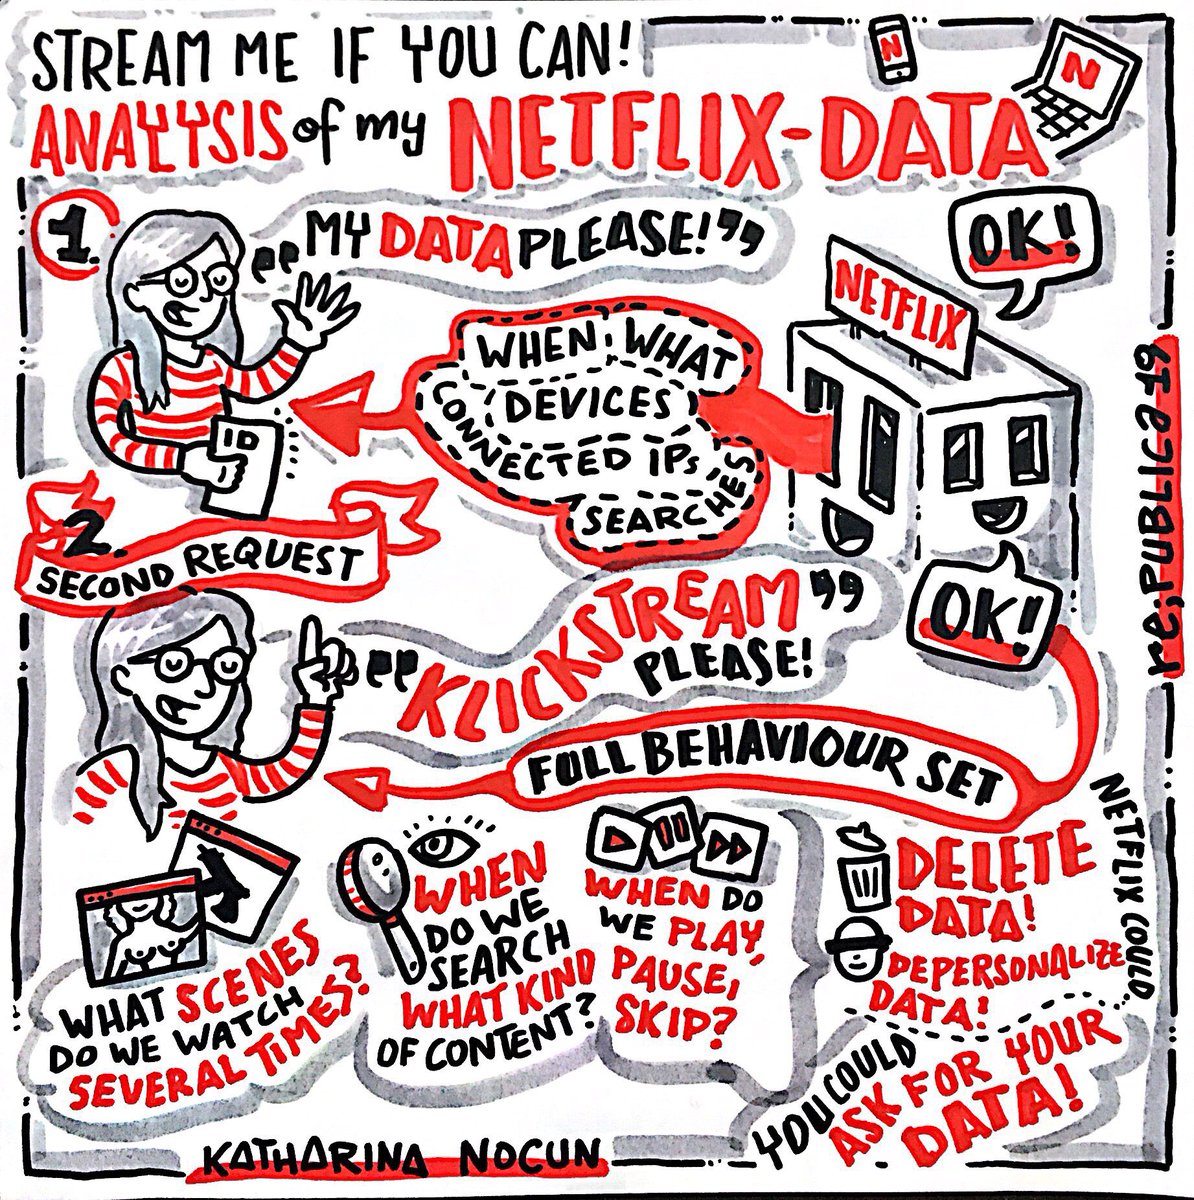 STREAM ME IF YOU CAN!
ANALYYSIS of my NETFLIX-DATA
N
N
1.
„MY DATA PLEASE!”
OK!
NETFLIX
WHEN WHAT
DEVICES
CONNECTED IPs
SEARCHES
ID
2.
SECOND REQUEST
„KLICKSTREAM
PLEASE!”
OK!
FULL BEHAVIOUR SET
WHAT SCENES
DO WE WATCH
SEVERAL TIMES?
WHEN
DO WE
SEARCH
WHAT KIND
OF CONTENT?
WHEN DO
WE PLAY,
PAUSE,
SKIP?
NETFLIX COULD...
DELETE
DATA!
DEPERSONALIZE
DATA!
YOU COULD
ASK FOR YOUR
DATA!
re:PUBLICA 19
KATHARINA NOCUN